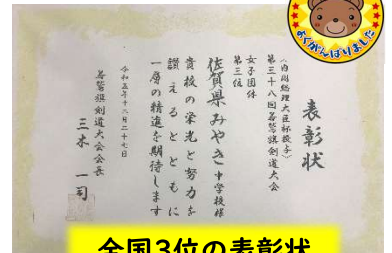 よくがんばりました
表彰状
(内閣総理大臣杯授与)
第三十八回若鷲旗剣道大会
女子団体
第三位
佐賀県みやき中学校様
貴校の栄光と努力を
讃えるとともに
一層の精進を期待します
令和五年十八月二十七日
若鷲旗剣道大会会長
三木一司
全国3位の表彰状